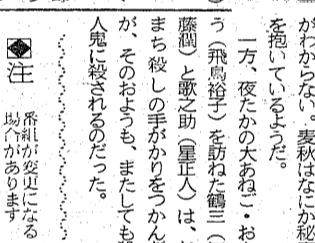 がわからない。麦秋はなにか秘
を抱いているようだ。
一方、夜たかの大あねご・お
う（飛鳥裕子）を訪ねた鶴三（
藤潤）と歌之助（星正人）は、
まち殺しの手がかりをつかん
が、そのおようも、またしても
人鬼に殺されるのだった。
注
番組が変更になる
場合があります